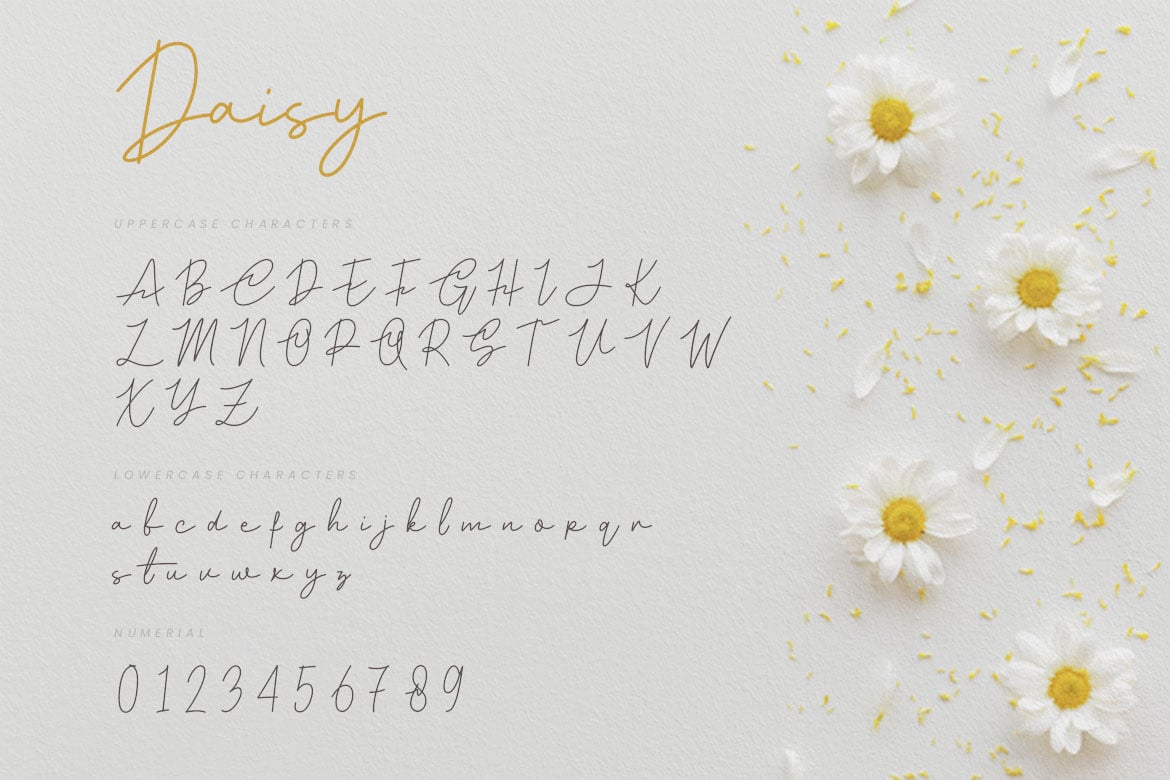 Daisy
UPPERCASE CHARACTERS
A B C D E F G H I J K
L M N O P Q R S T U V W
X Y Z
LOWERCASE CHARACTERS
a b c d e f g h i j k l m n o p q r
s t u v w x y z
NUMERIAL
0 1 2 3 4 5 6 7 8 9